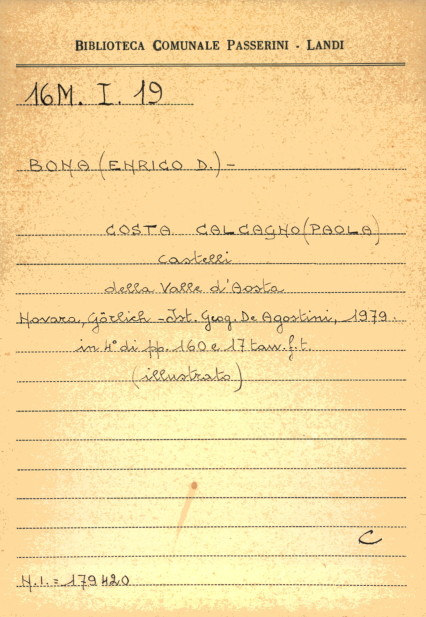 BIBLIOTECA COMUNALE PASSERINI - LANDI
16M. I. 19
BONA (ENRICO D.) -
COSTA CALCAGNO (PAOLA)
Castelli
della Valle d'Aosta
Novara, Görlich - Ist. Geog. De Agostini, 1979.
in 4° di pp. 160 e 17 tav. f. t.
(illustrato)
C
N.I. = 179420